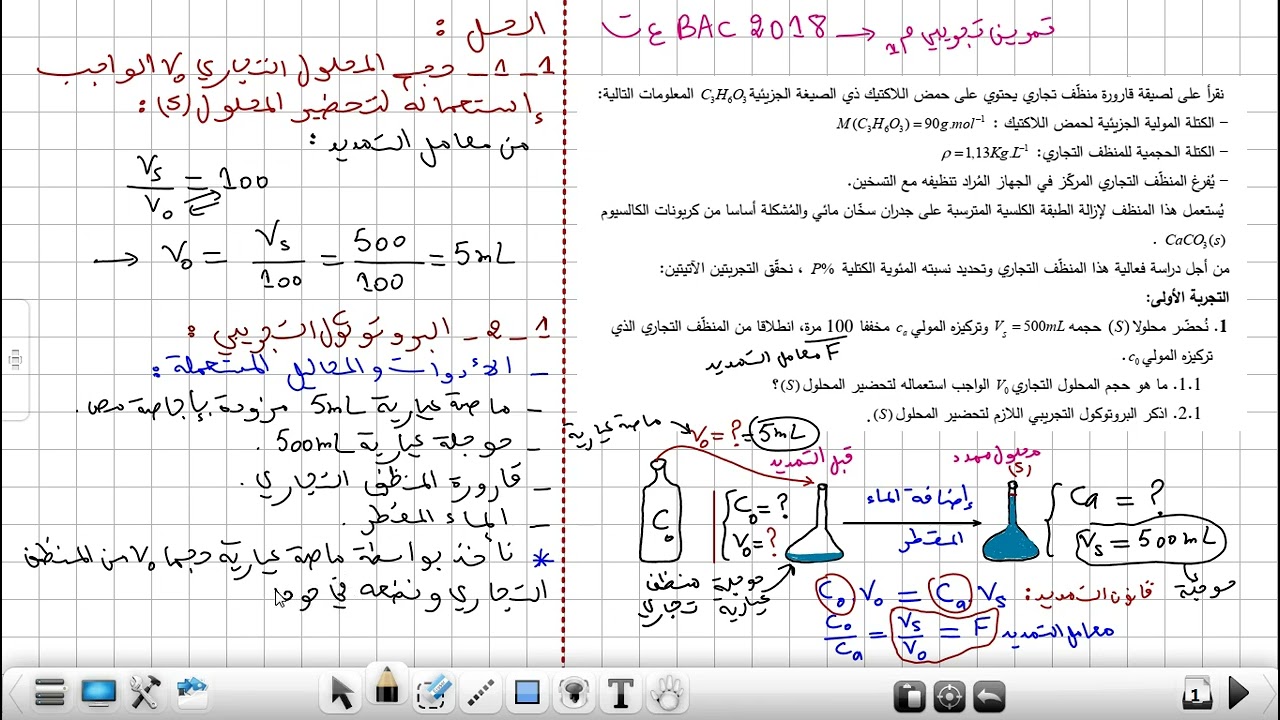 تمرين تجريبي م1 → BAC 2018 ع ت
نقرأ على لصيقة قارورة منظّف تجاري يحتوي على حمض اللاكتيك ذي الصيغة الجزيئية C₃H₆O₃ المعلومات التالية:
– الكتلة المولية الجزيئية لحمض اللاكتيك : M(C₃H₆O₃) = 90g.mol⁻¹
– الكتلة الحجمية للمنظف التجاري: ρ = 1,13Kg.L⁻¹
– يُفرغ المنظّف التجاري المركّز في الجهاز المُراد تنظيفه مع التسخين.
يُستعمل هذا المنظف لإزالة الطبقة الكلسية المترسبة على جدران سخّان مائي والمُشكلة أساسا من كربونات الكالسيوم
CaCO₃(s) .
من أجل دراسة فعالية هذا المنظّف التجاري وتحديد نسبته المئوية الكتلية P% ، نحقّق التجربتين الآتيتين:
التجربة الأولى:
1. نُحضّر محلولا (S) حجمه V_S = 500mL وتركيزه المولي c_a مخففا 100 مرة، انطلاقا من المنظّف التجاري الذي
تركيزه المولي c₀.
F معامل التمديد
1.1. ما هو حجم المحلول التجاري V₀ الواجب استعماله لتحضير المحلول (S)؟
2.1. اذكر البروتوكول التجريبي اللازم لتحضير المحلول (S).
ماصة عيارية
V₀ = ? = 5mL
قبل التمديد
محلول ممدد
(S)
C₀
C₀ = ?
V₀ = ?
إضافة الماء
المقطر
Ca = ?
Vs = 500mL
حوجلة
عيارية
منظف
تجاري
قانون التمديد: C₀ V₀ = Ca Vs
معامل التمديد C₀/Ca = Vs/V₀ = F
الحل :
1-1- حجم المحلول التجاري V₀ الواجب
إستعماله لتحضير المحلول (S) :
من معامل التمديد :
Vs/V₀ = 100
→ V₀ = Vs/100 = 500/100 = 5mL
1-2- البروتوكول التجريبي :
- الأدوات والمحاليل المستعملة :
- ماصة عيارية 5mL مزودة بإجاصة مص.
- حوجلة عيارية 500mL .
- قارورة المنظف التجاري .
- الماء المقطر .
* نأخذ بواسطة ماصة عيارية حجما V₀ من المنظف
التجاري ونضعه في حوجـ
1